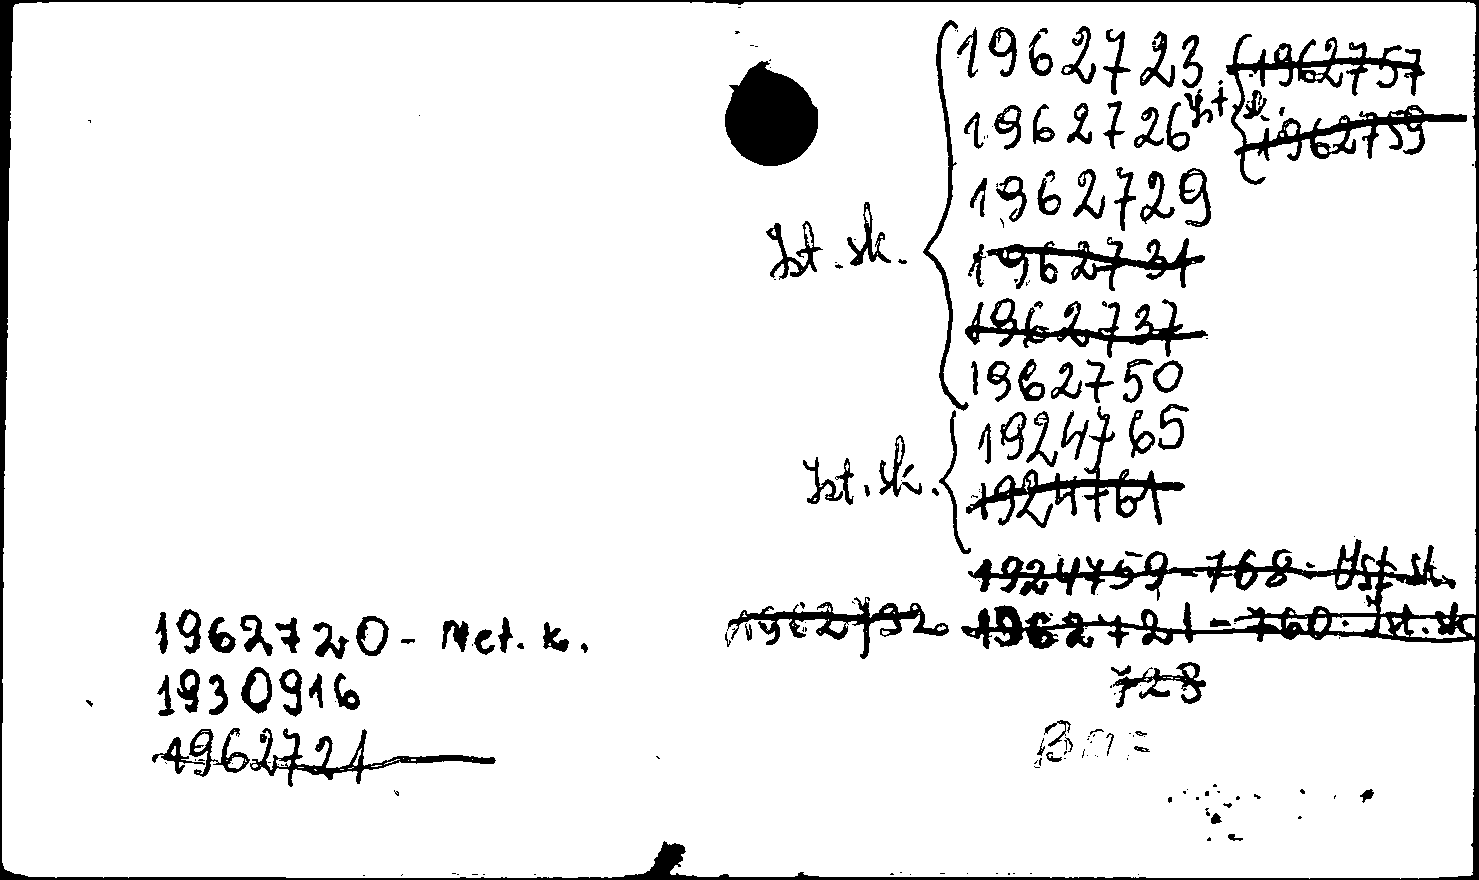 1962723 1962757
1962726 Ist. sk. 1962759
1962729
Ist. sk.
1962731
1962737
1962750
1924765
Ist. sk.
1924761
1924759-768- Ist. sk.
1962720 - Met. k.
1962732 1962721-760- Ist. sk
1930916
728
1962721